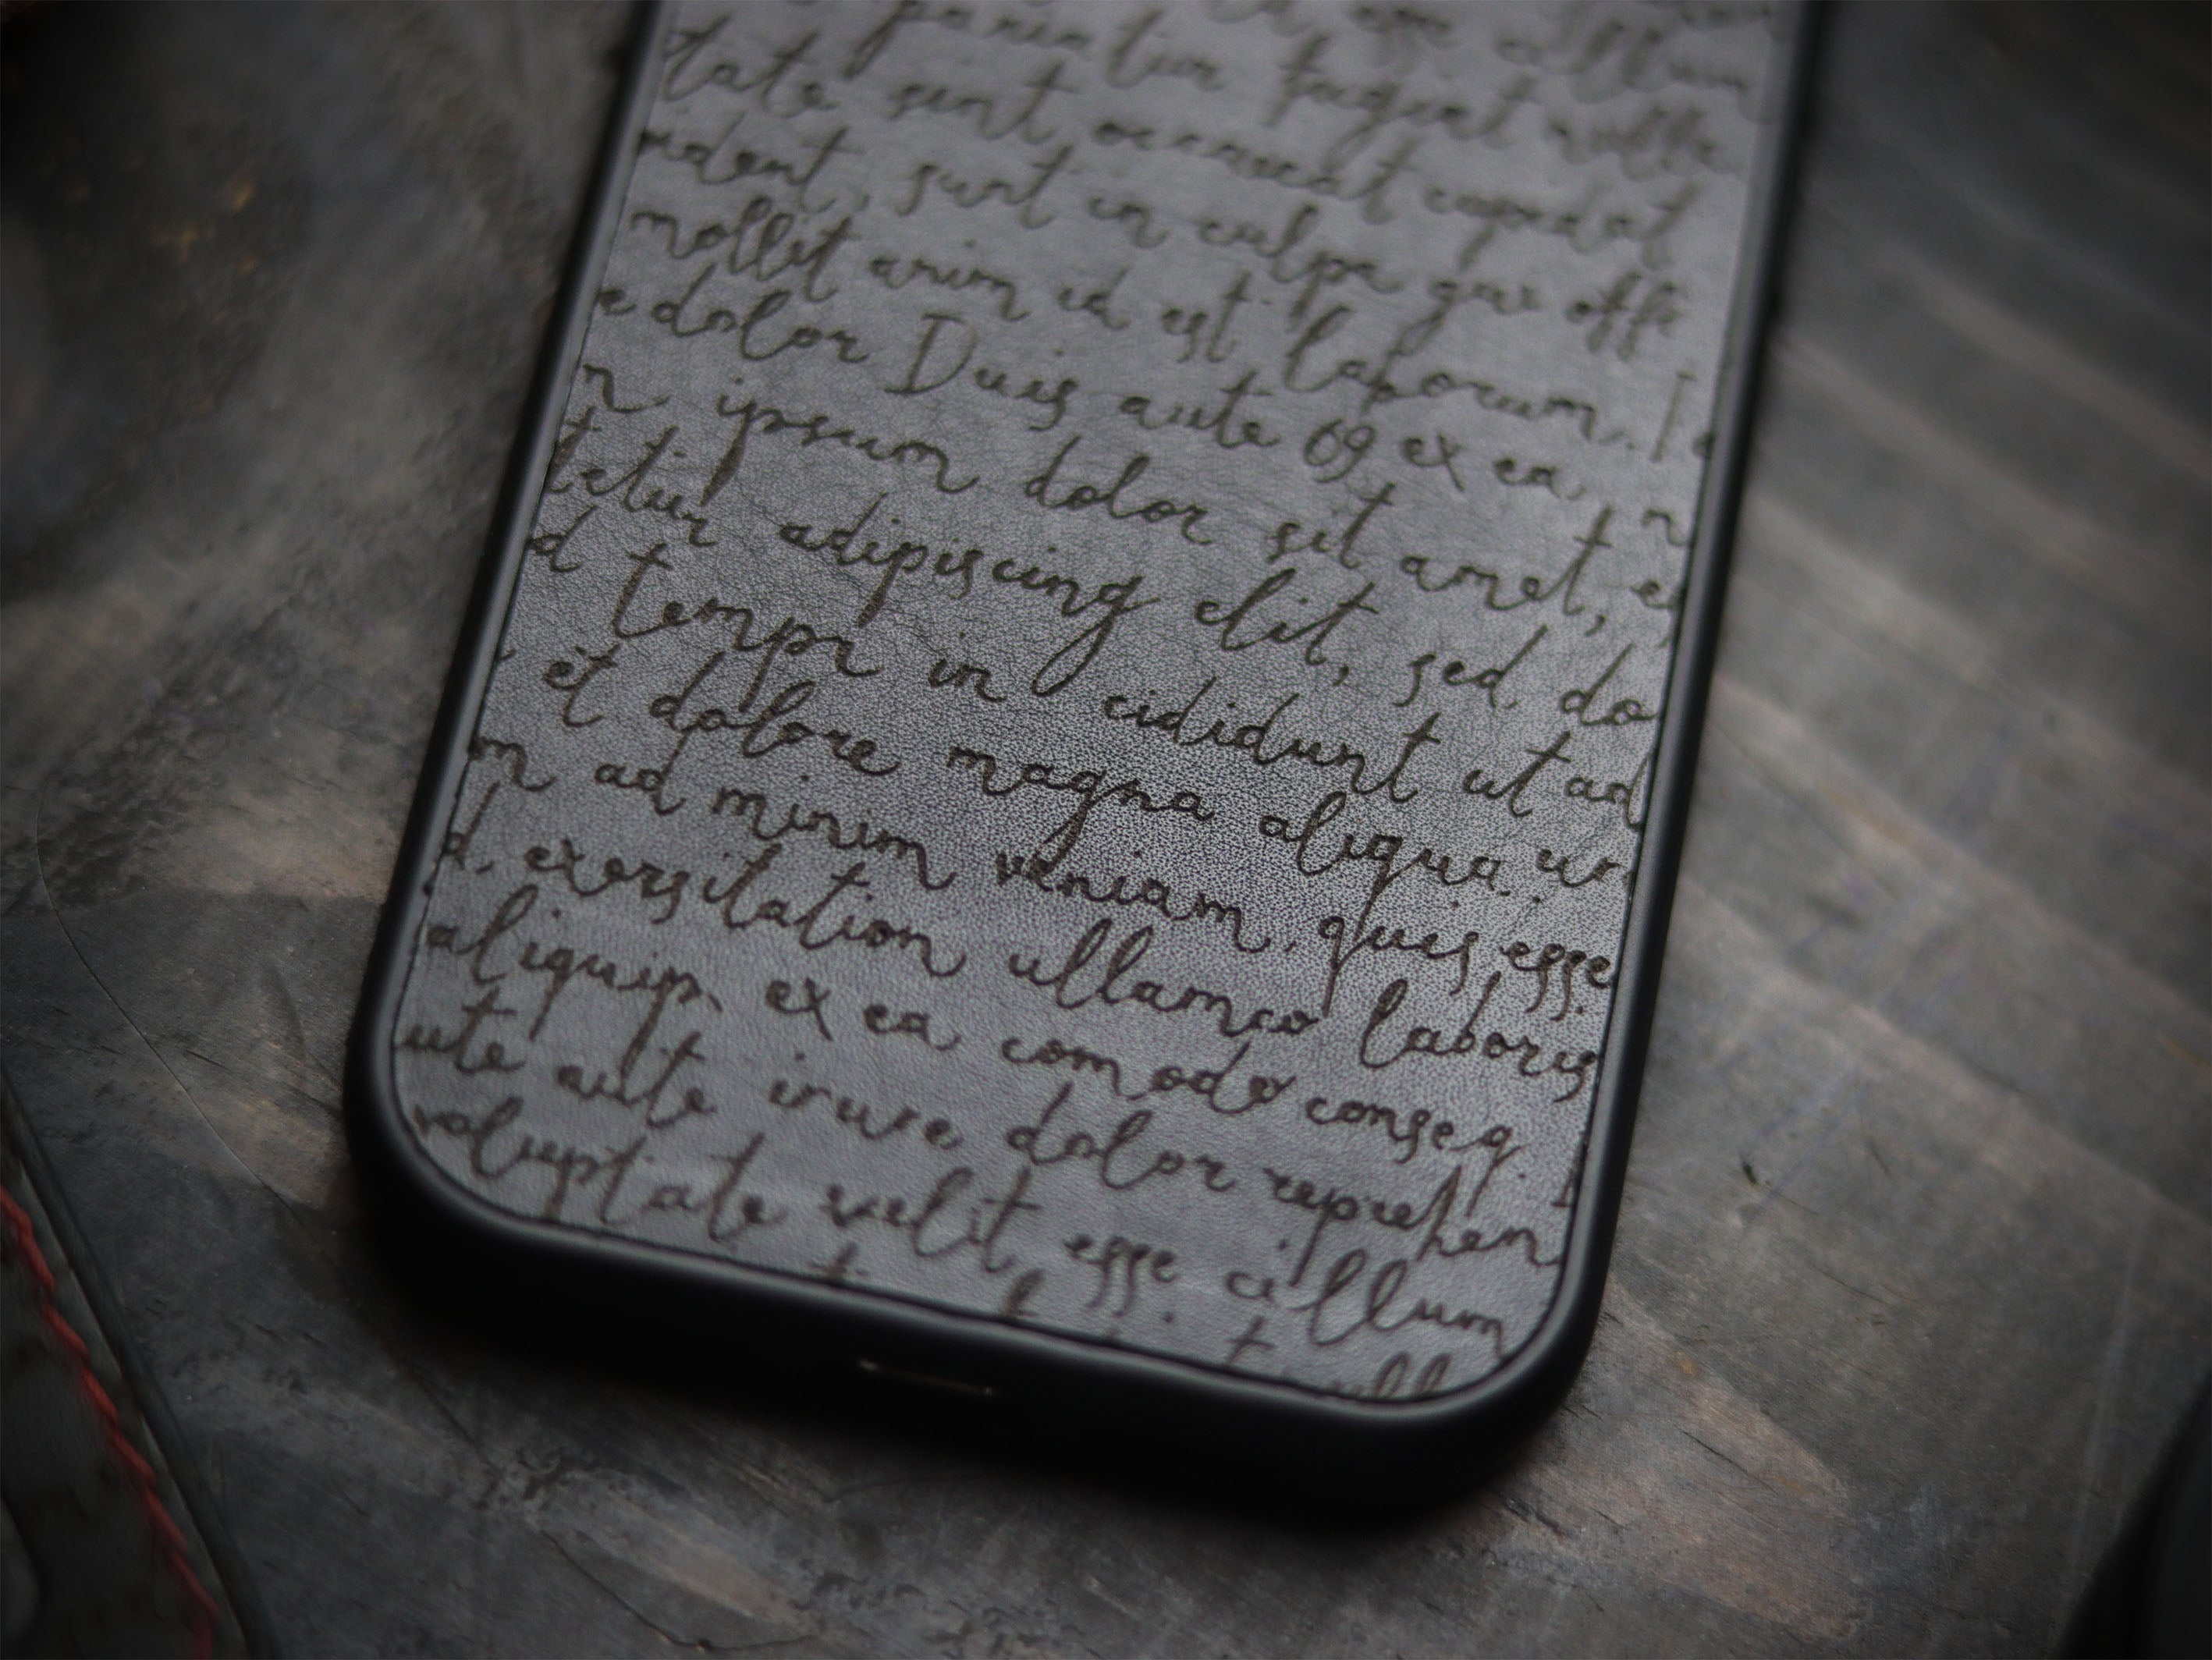 esse cillum
pariatur fugiat nulla
tate sint occaecat cupidat
rident, sunt in culpa qui offi
mollit anim id est laborum. I
e dolor Duis aute 69 ex ea, n
n ipsum dolor sit amet, e
tetur adipiscing elit, sed, do
d tempr in cididunt ut ad
et dolore magna aliqua. ur
m ad minim veniam, quis esse
d, exersitation ullamco laboris
aliquip ex ea comodo conseq.
ute aute irure dolor reprehen
voluptate velit esse cillum